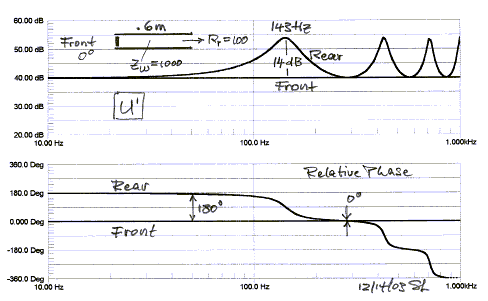 60.00 dB
50.00 dB
40.00 dB
30.00 dB
20.00 dB
.6m
Front
0°
→ Rr=100
Zw=1000
143Hz
14dB
Rear
Front
U'
10.00 Hz
100.0 Hz
1.000kHz
360.0 Deg
180.0 Deg
0.000 Deg
-180.0 Deg
-360.0 Deg
Relative Phase
Rear
180°
0°
Front
12/14/03 SL
10.00 Hz
100.0 Hz
1.000kHz